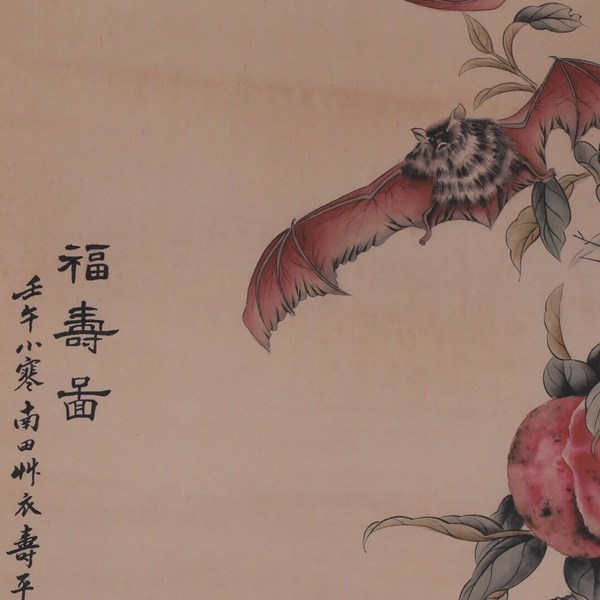 福壽啚
壬午小寒南田艸衣壽平